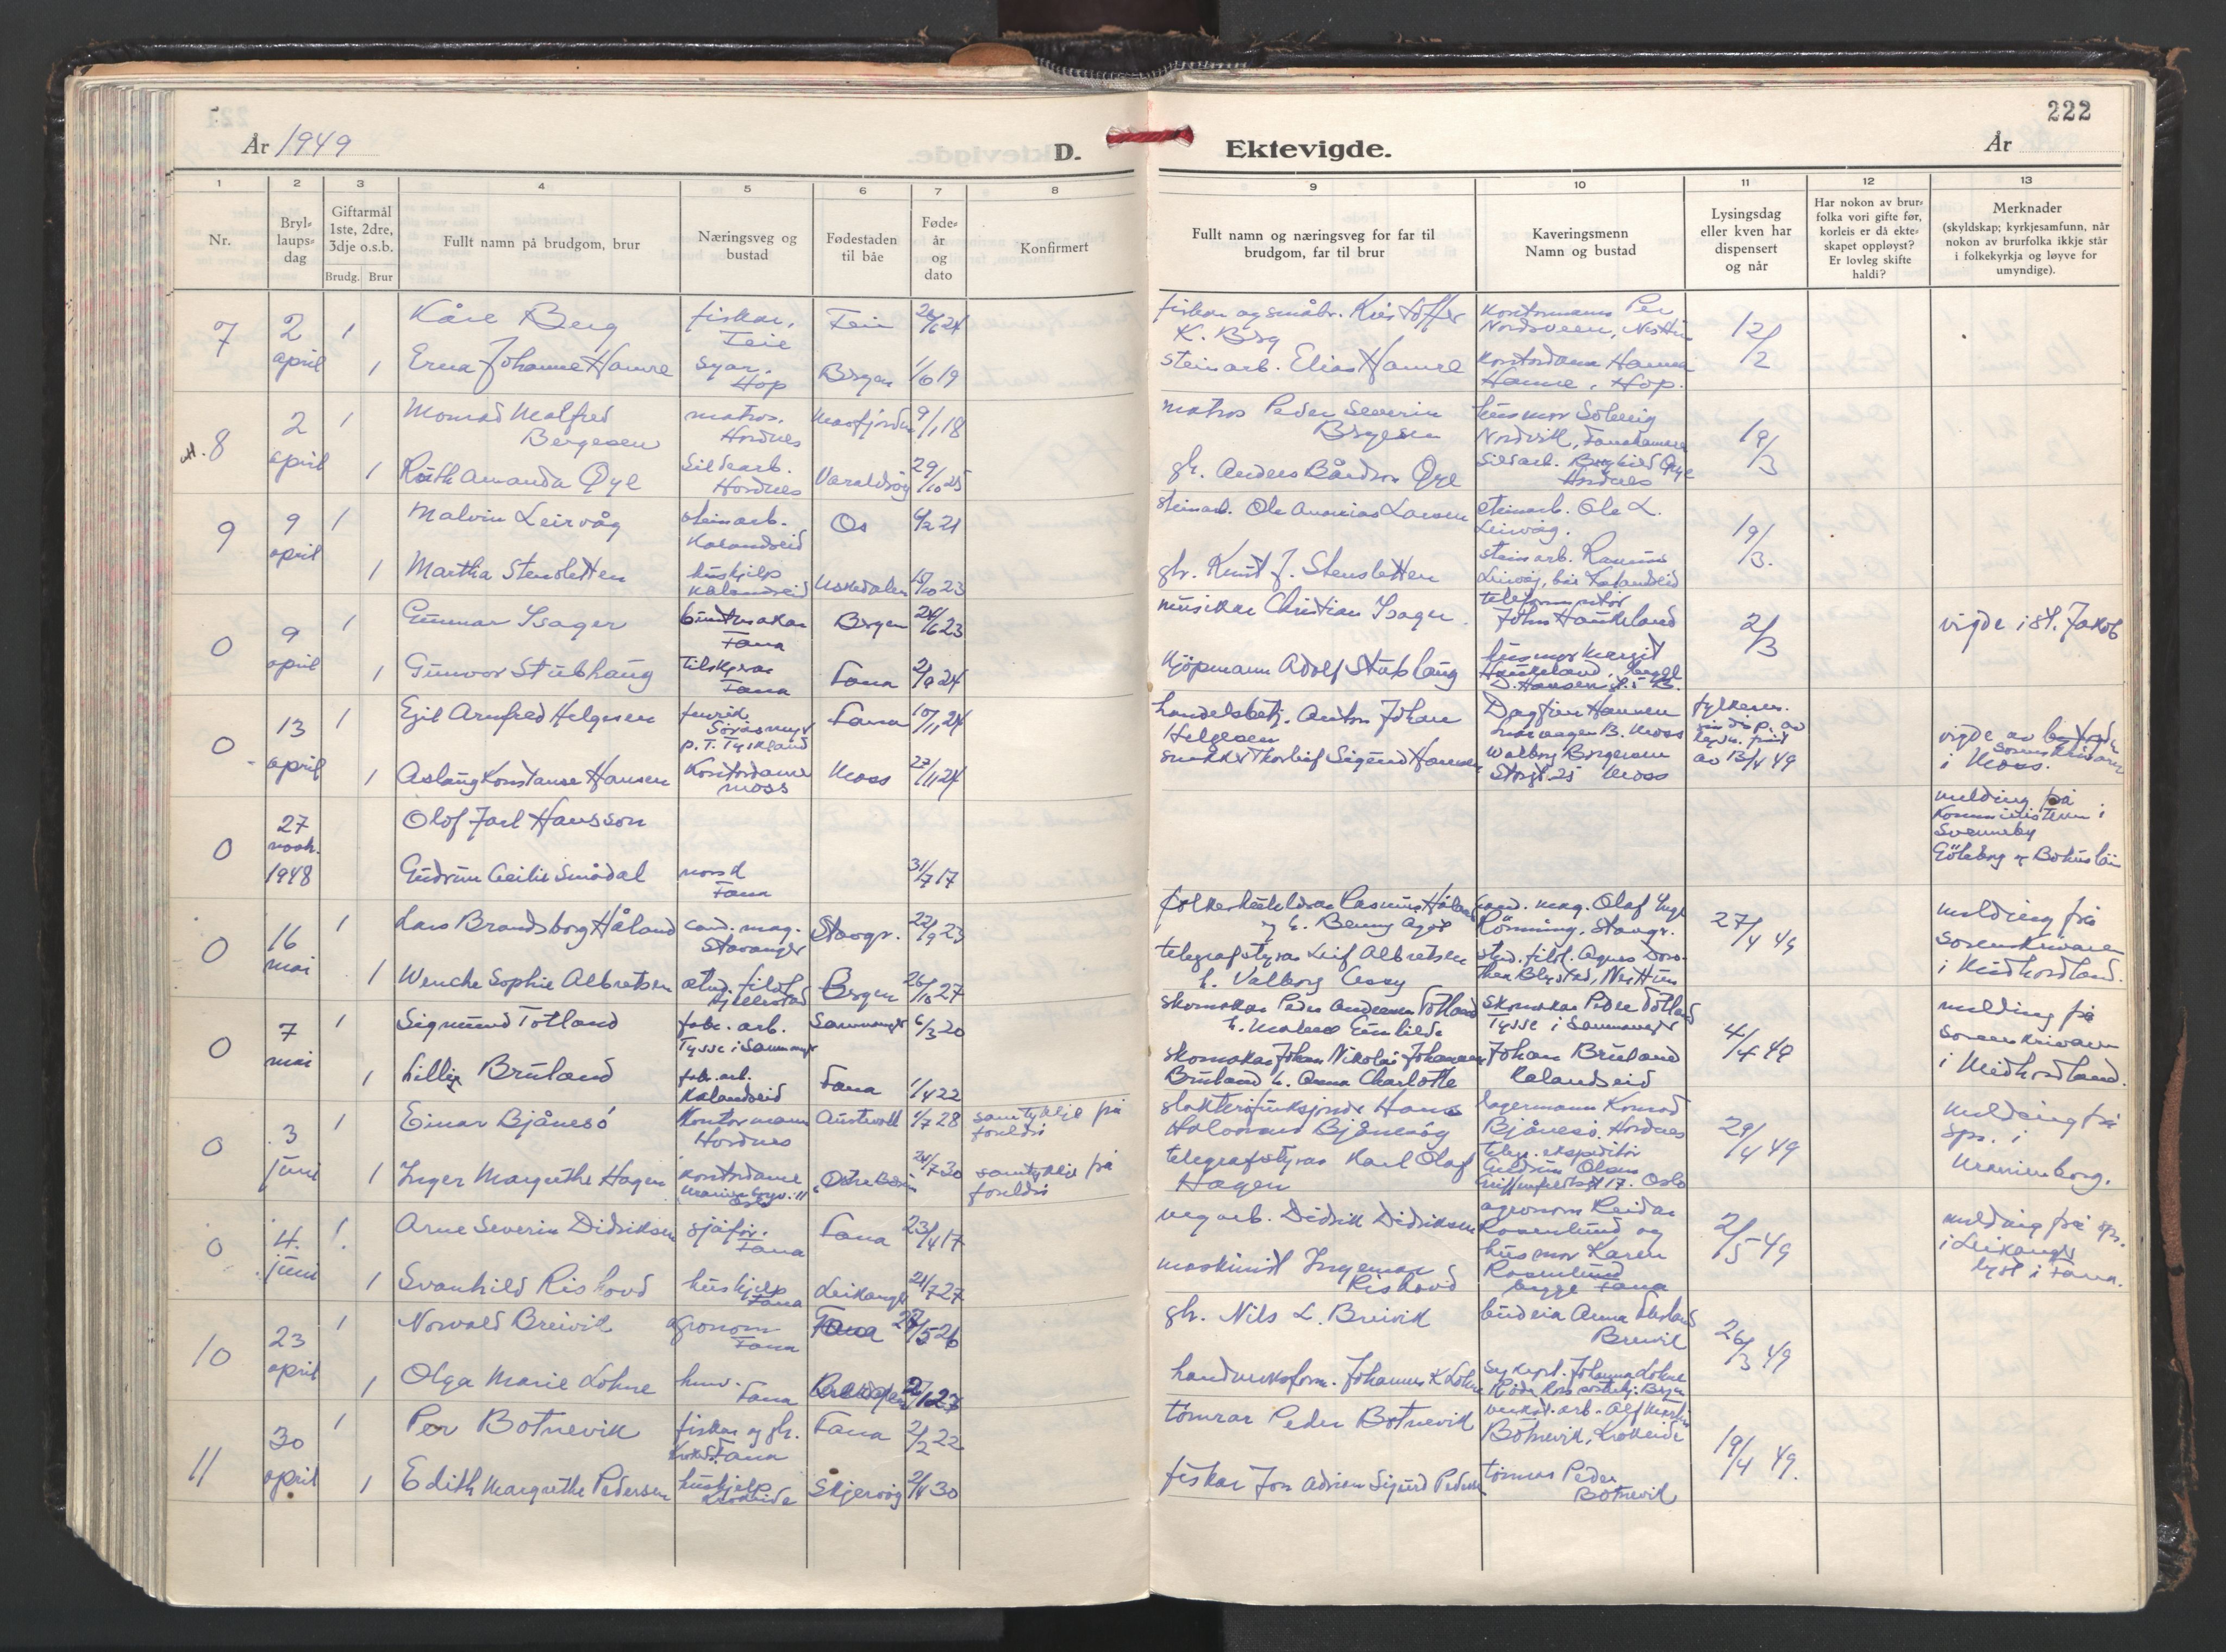 222
År 1949
D.
Ektevigde.
År
1
2
3
4
5
6
7
8
9
10
11
12
13
Nr.
Bryl-
laups-
dag
Giftarmål
1ste, 2dre,
3dje o.s.b.
Brudg. Brur
Fullt namn på brudgom, brur
Næringsveg og
bustad
Fødestaden
til båe
Føde-
år
og
dato
Konfirmert
Fullt namn og næringsveg for far til
brudgom, far til brur
Kaveringsmenn
Namn og bustad
Lysingsdag
eller kven har
dispensert
og når
Har nokon av brur-
folka vori gifte før,
korleis er då ekte-
skapet oppløyst?
Er lovleg skifte
haldi?
Merknader
(skyldskap; kyrkjesamfunn, når
nokon av brurfolka ikkje står
i folkekyrkja og løyve for
umyndige).
7
2
april
1
Kåre Berg
fiskar,
Teie
26/6 24
K. Berg
12/2
1
Erna Johanne Hamre
syar.
Hop
Bergen
1/6 19
steinarb. Elias Hamre
Hamre, Hop.
8
2
april
1
Monrad Malfred
Bergesen
matros.
Hordnes
9/1 18
matros Peder Severin
Bergesen
husmor Solveig
19/3
1
Ruth Amanda Øye
Sildearb.
Hordnes
Varaldsøy
29/10 25
gbr. Anders Bårdson Øye
Hordnes
9
9
april
1
Malvin Leirvåg
steinarb.
Kalandseid
Os
6/2 21
steinarb. Ole Ananias Larsen
steinarb. Ole L.
Leirvåg.
19/3.
1
Martha Stensletten
hushjelp
Kalandseid
Uskedalen
15/10 23
gbr. Knut J. Stensletten
steinarb. Rasmus
Leirvåg, bæ Kalandseid
0
9
april
1
Gunnar Isager
buntmakar
Fana
Bergen
24/6 23
musikar Christian Isager
John Haukeland
2/3
vigde i St. Jakob
1
Gunvor Stubhaug
Tilskjerar
Fana
Fana
2/9 24
kjøpmann Adolf Stubhaug
husmor Margit
Haukeland,
0
13
april
1
Egil Arnfred Helgesen
fenrik
p.t. Tyskland
Fana
10/11 24
handelsbetj. Anton Johan
Helgesen
Dagfinn Hansen
av 13/4 49
vigde av
i Moss.
1
Aslaug Konstanse Hansen
Kontordame
Moss
Moss
27/11 24
snekker Thorleif Sigurd Hansen
Walborg Bergesen
Storgt. 25 Moss
0
27
novb.
1948
Olof Jarl Hansson
melding frå
i
Svenneby
Göteborg og Bohuslän
Gudrun Cecilie Smådal
norsk
Fana
31/7 17
0
16
mai
1
Lars Brandsborg Håland
cand. mag.
Stavanger
Stavgr.
22/9 23
cand. mag. Olaf Inge
Rönning, Stavgr.
27/4 49
melding frå
sorenskrivaren
i Midhordland.
1
Wenche Sophie Albretsen
stud. filol.
Bergen
26/10 27
telegrafstyrar Leif Albretsen
stud. filol. Agnes Doro-
thea Blystad, Nesttun
0
7
mai
1
Sigmund Totland
fabr. arb.
Tysse i Samnanger
Samnanger
6/3 20
skomakar Peder Andersen Totland
skomakar Peder Totland
Tysse i Samnanger
4/4 49
melding frå
sorenskrivaren
i Midhordland.
1
Lilly Bruland
fabr. arb.
Kalandseid
Fana
1/4 22
skomakar Johan Nikolai Johannesen
Bruland h. Anna Charlotte
Johan Bruland
Kalandseid
0
3
juni
1
Einar Bjånesö
Kontormann
Hordnes
Austevoll
1/7 28
samtykkje frå
foreldri
Bjånesøy
lagermann Konrad
Bjånesö. Hordnes
29/4 49
melding frå
spr. i
Uranienborg.
1
Inger Margrethe Hagen
kontordame
Oslo
24/7 30
samtykkje frå
foreldri
telegrafstyrar Karl Olaf
Hagen
Gudrun Olsen
Oslo
0
4.
juni
1.
Arne Severin Didriksen
sjåfør.
Fana
Fana
23/4 17
vegarb. Didrik Didriksen
agronom Reidar
Rosenlund og
2/5-49
melding frå spr.
i Leikanger
lyst i Fana.
1
Svanhild Rishovd
hushjelp
Fana
Leikanger
21/7 27
maskinist Ingemar
Rishovd
husmor Karen
Rosenlund
begge Fana
10
23
april
1
Norvald Breivik
agronom
Fana
Fana
27/5 26
gbr. Nils L. Breivik
budeia Anna
Breivik
26/3 49
1
Olga Marie Lohne
husv.
Fana
2/1 27
handverksform. Johannes K Lohne
11
30
april
1
Per Botnevik
fiskar og gbr.
Fana
Fana
2/2 22
tömrar Peder Botnevik
verkst. arb. Alf Martin
Botnevik, Krokeide
19/4 49.
1
Edith Margrethe Pedersen
hushjelp
Krokeide
Skjervøy
2/4 30
fiskar Jon Adrian Sigurd Pedersen
tömrar Peder
Botnevik